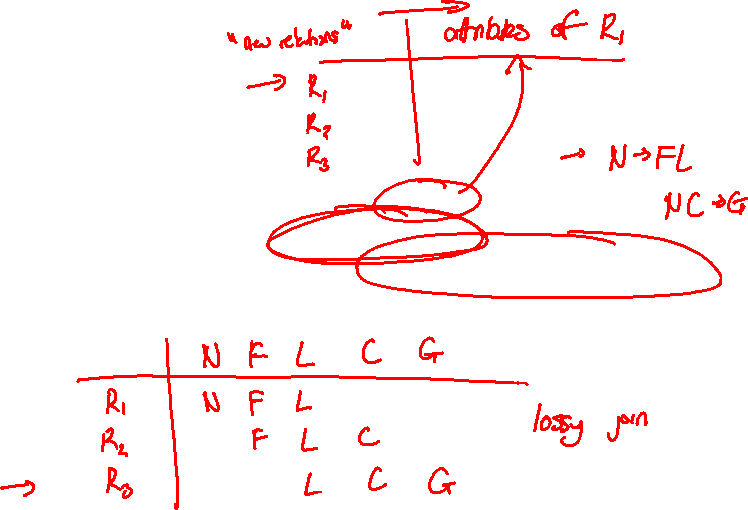 "new relations" attributes of R₁
R₁
R₂
R₃
→ N→FL
NC→G
N F L C G
R₁ N F L
R₂ F L C
R₃ L C G
lossy join